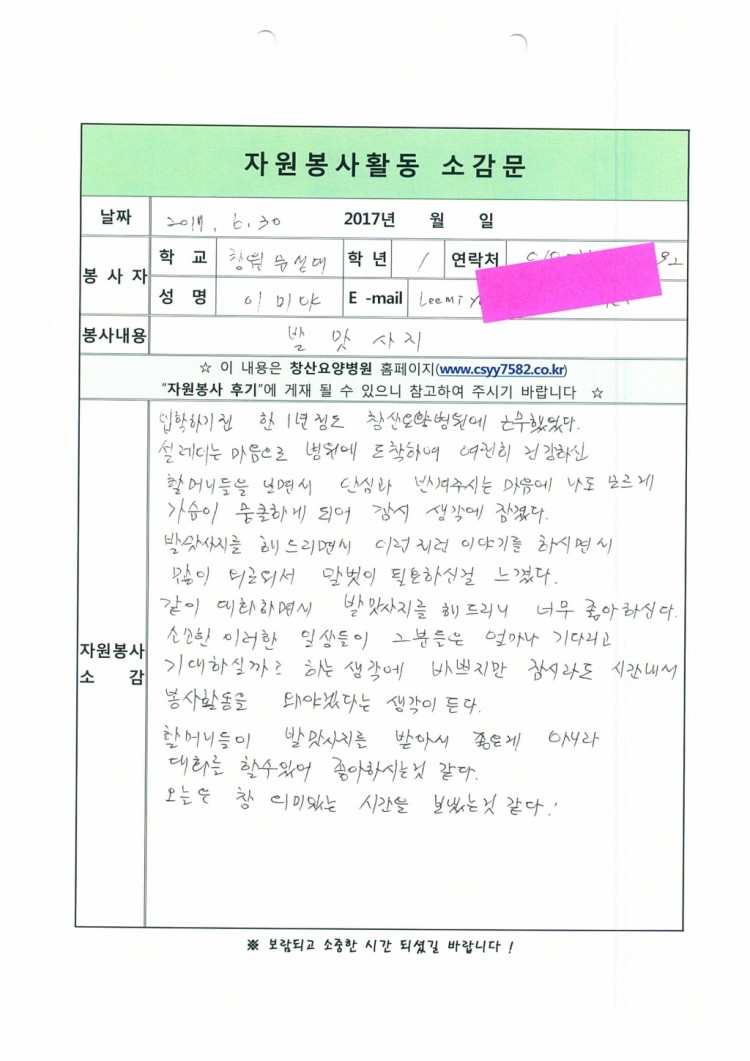 자원봉사활동 소감문
날짜 2017. 6. 30 2017년 월 일
봉사자 학교 창원문성대 학년 1 연락처
성명 이미야 E-mail LeeMiY
봉사내용 발 맛사지
☆ 이 내용은 창산요양병원 홈페이지(www.csyy7582.co.kr)
"자원봉사 후기"에 게재 될 수 있으니 참고하여 주시기 바랍니다 ☆
자원봉사 소감
입학하기전 한 1년정도 창산요양병원에 근무했었다.
설레이는 마음으로 병원에 도착하여 여전히 건강하신
할머니들을 보면서 안심과 반겨주시는 마음에 나도 모르게
가슴이 뭉클하게 되어 잠시 생각에 잠겼다.
발맛사지를 해드리면서 이런저런 이야기를 하시면서
많이 외로워서 말벗이 필요하신걸 느꼈다.
같이 대화하면서 발맛사지를 해드리니 너무 좋아하신다.
소소한 이러한 일상들이 그분들은 얼마나 기다리고
기대하실까? 하는 생각에 바쁘지만 잠시라도 시간내서
봉사활동을 와야겠다는 생각이 든다.
할머니들이 발맛사지를 받아서 좋은게 아니라
대화를 할수있어 좋아하시는것 같다.
오늘은 참 의미있는 시간을 보냈는것 같다.!
※ 보람되고 소중한 시간 되셨길 바랍니다 !